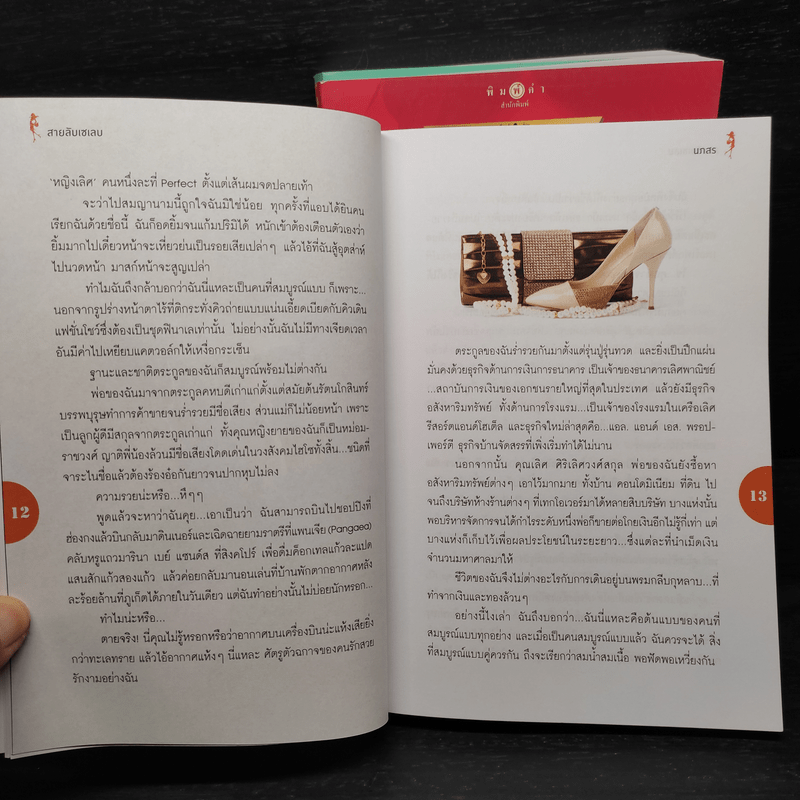 พิมพ์คำ
สำนักพิมพ์
สายลับเซเลบ
'หญิงเลิศ' คนหนึ่งละที่ Perfect ตั้งแต่เส้นผมจดปลายเท้า
จะว่าไปสมญานามนี้ถูกใจฉันมิใช่น้อย ทุกครั้งที่แอบได้ยินคน
เรียกฉันด้วยชื่อนี้ ฉันก็อดยิ้มจนแก้มปริมิได้ หนักเข้าต้องเตือนตัวเองว่า
ยิ้มมากไปเดี๋ยวหน้าจะเหี่ยวย่นเป็นรอยเสียเปล่าๆ แล้วไอ้ที่ฉันสู้อุตส่าห์
ไปนวดหน้า มาสก์หน้าจะสูญเปล่า
ทำไมฉันถึงกล้าบอกว่าฉันนี่แหละเป็นคนที่สมบูรณ์แบบ ก็เพราะ...
นอกจากรูปร่างหน้าตาไร้ที่ติกระทั่งคิวถ่ายแบบแน่นเอี้ยดเบียดกับคิวเดิน
แฟชั่นโชว์ซึ่งต้องเป็นชุดฟินาเลเท่านั้น ไม่อย่างนั้นฉันไม่มีทางเจียดเวลา
อันมีค่าไปเหยียบแคตวอล์กให้เหงื่อกระเซ็น
ฐานะและชาติตระกูลของฉันก็สมบูรณ์พร้อมไม่ต่างกัน
พ่อของฉันมาจากตระกูลคหบดีเก่าแก่ตั้งแต่สมัยต้นรัตนโกสินทร์
บรรพบุรุษทำการค้าขายจนร่ำรวยมีชื่อเสียง ส่วนแม่ก็ไม่น้อยหน้า เพราะ
เป็นลูกผู้ดีมีสกุลจากตระกูลเก่าแก่ ทั้งคุณหญิงยายของฉันก็เป็นหม่อม-
ราชวงศ์ ญาติพี่น้องล้วนมีชื่อเสียงโดดเด่นในวงสังคมไฮโซทั้งสิ้น...ชนิดที่
จาระไนชื่อแล้วต้องร้องอ๋อกันยาวจนปากหุบไม่ลง
ความรวยน่ะหรือ...หึๆๆ
พูดแล้วจะหาว่าฉันคุย...เอาเป็นว่า ฉันสามารถบินไปชอปปิงที่
ฮ่องกงแล้วบินกลับมาดินเนอร์และเฉิดฉายยามราตรีที่แพนเจีย (Pangaea)
คลับหรูแถวมารินา เบย์ แซนด์ส ที่สิงคโปร์ เพื่อดื่มค็อกเทลแก้วละแปด
แสนสักแก้วสองแก้ว แล้วค่อยกลับมานอนเล่นที่บ้านพักตากอากาศหลัง
ละร้อยล้านที่ภูเก็ตได้ภายในวันเดียว แต่ฉันทำอย่างนั้นไม่บ่อยนักหรอก...
ทำไมน่ะหรือ...
ตายจริง! นี่คุณไม่รู้หรอกหรือว่าอากาศบนเครื่องบินน่ะแห้งเสียยิ่ง
กว่าทะเลทราย แล้วไอ้อากาศแห้งๆ นี่แหละ ศัตรูตัวฉกาจของคนรักสวย
รักงามอย่างฉัน
12
นภสร
ตระกูลของฉันร่ำรวยกันมาตั้งแต่รุ่นปู่รุ่นทวด และยิ่งเป็นปึกแผ่น
มั่นคงด้วยธุรกิจด้านการเงินการธนาคาร เป็นเจ้าของธนาคารเลิศพาณิชย์
...สถาบันการเงินของเอกชนรายใหญ่ที่สุดในประเทศ แล้วยังมีธุรกิจ
อสังหาริมทรัพย์ ทั้งด้านการโรงแรม...เป็นเจ้าของโรงแรมในเครือเลิศ
รีสอร์ตแอนด์โฮเต็ล และธุรกิจใหม่ล่าสุดคือ...แอล. แอนด์ เอส. พรอป-
เพอร์ตี ธุรกิจบ้านจัดสรรที่เพิ่งเริ่มทำได้ไม่นาน
นอกจากนั้น คุณเลิศ ศิริเลิศวงศ์สกุล พ่อของฉันยังซื้อหา
อสังหาริมทรัพย์ต่างๆ เอาไว้มากมาย ทั้งบ้าน คอนโดมิเนียม ที่ดิน ไป
จนถึงบริษัทห้างร้านต่างๆ ที่เทกโอเวอร์มาได้หลายสิบบริษัท บางแห่งนั้น
พอบริหารจัดการจนได้กำไรระดับหนึ่งพ่อก็ขายต่อโกยเงินอีกไม่รู้กี่เท่า แต่
บางแห่งก็เก็บไว้เพื่อผลประโยชน์ในระยะยาว...ซึ่งแต่ละที่นำเม็ดเงิน
จำนวนมหาศาลมาให้
ชีวิตของฉันจึงไม่ต่างอะไรกับการเดินอยู่บนพรมกลีบกุหลาบ...ที่
ทำจากเงินและทองล้วนๆ
อย่างนี้ไงเล่า ฉันถึงบอกว่า...ฉันนี่แหละคือต้นแบบของคนที่
สมบูรณ์แบบทุกอย่าง และเมื่อเป็นคนสมบูรณ์แบบแล้ว ฉันควรจะได้ สิ่ง
ที่สมบูรณ์แบบคู่ควรกัน ถึงจะเรียกว่าสมน้ำสมเนื้อ พอฟัดพอเหวี่ยงกัน
13